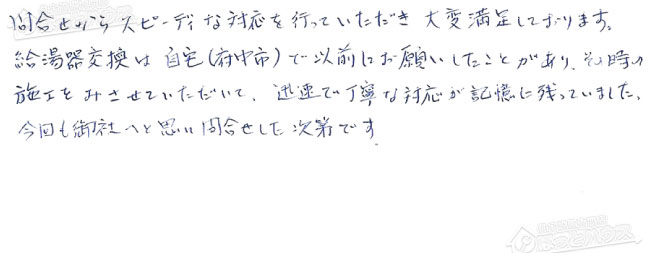 問合せからスピーディな対応を行っていただき大変満足しております。
給湯器交換は自宅(府中市)で以前にお願いしたことがあり、その時の
施工をみさせていただいて、迅速で丁寧な対応が記憶に残っていました。
今回も御社へと思い問合せした次第です